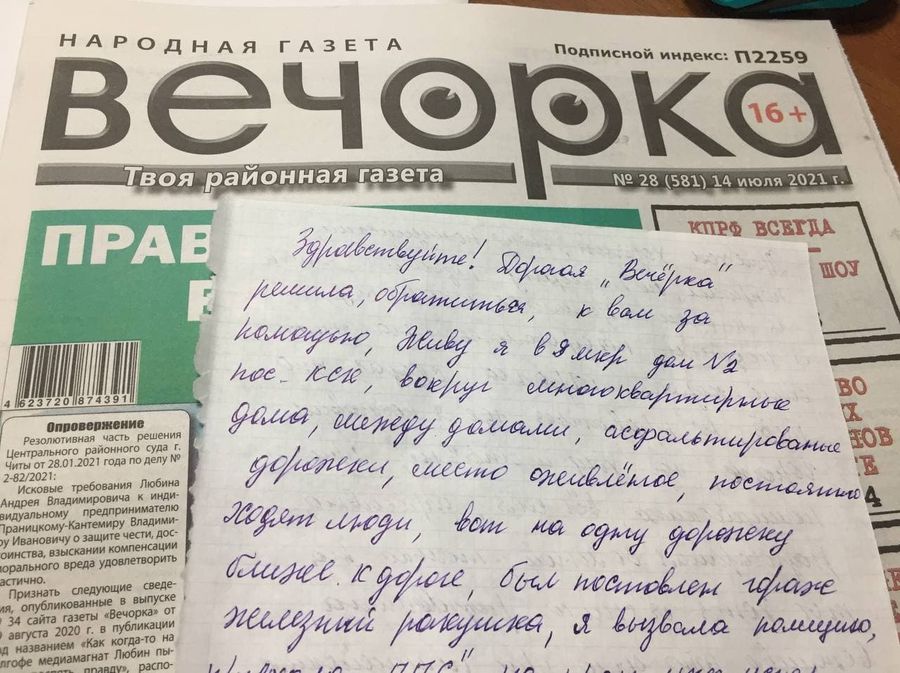 НАРОДНАЯ ГАЗЕТА
Подписной индекс: П2259
Вечорка
16+
Твоя районная газета
№ 28 (581) 14 июля 2021 г.
ПРАВ
КПРФ ВСЕГДА
ШОУ
4 623720 874391
Опровержение
Резолютивная часть решения
Центрального районного суда г.
Читы от 28.01.2021 года по делу №
2-82/2021:
Исковые требования Любина
Андрея Владимировича к инди-
видуальному предпринимателю
Праницкому-Кантемиру Владими-
ру Ивановичу о защите чести, дос-
тоинства, взыскании компенсации
морального вреда удовлетворить
частично.
Признать следующие сведе-
ия, опубликованные в выпуске
34 сайта газеты «Вечорка» от
августа 2020 г. в публикации
од названием «Как когда-то на
лгофе медиамагнат Любин пы-
правду», распо-
Здравствуйте! Дорогая „Вечёрка"
решила, обратиться, к вам за
помощью, Живу я в 9 мкр дом №2
пос. КСК, вокруг многоквартирные
дома, между домами, асфальтированые
дорожки, место оживлёное, постоянно
ходят люди, вот на одну дорожку
ближе к дороге, был поставлен гараж
железный ракушка, я вызвала полицию,
ППС"
ВО
ЫХ
НОВ
ИЕ
4